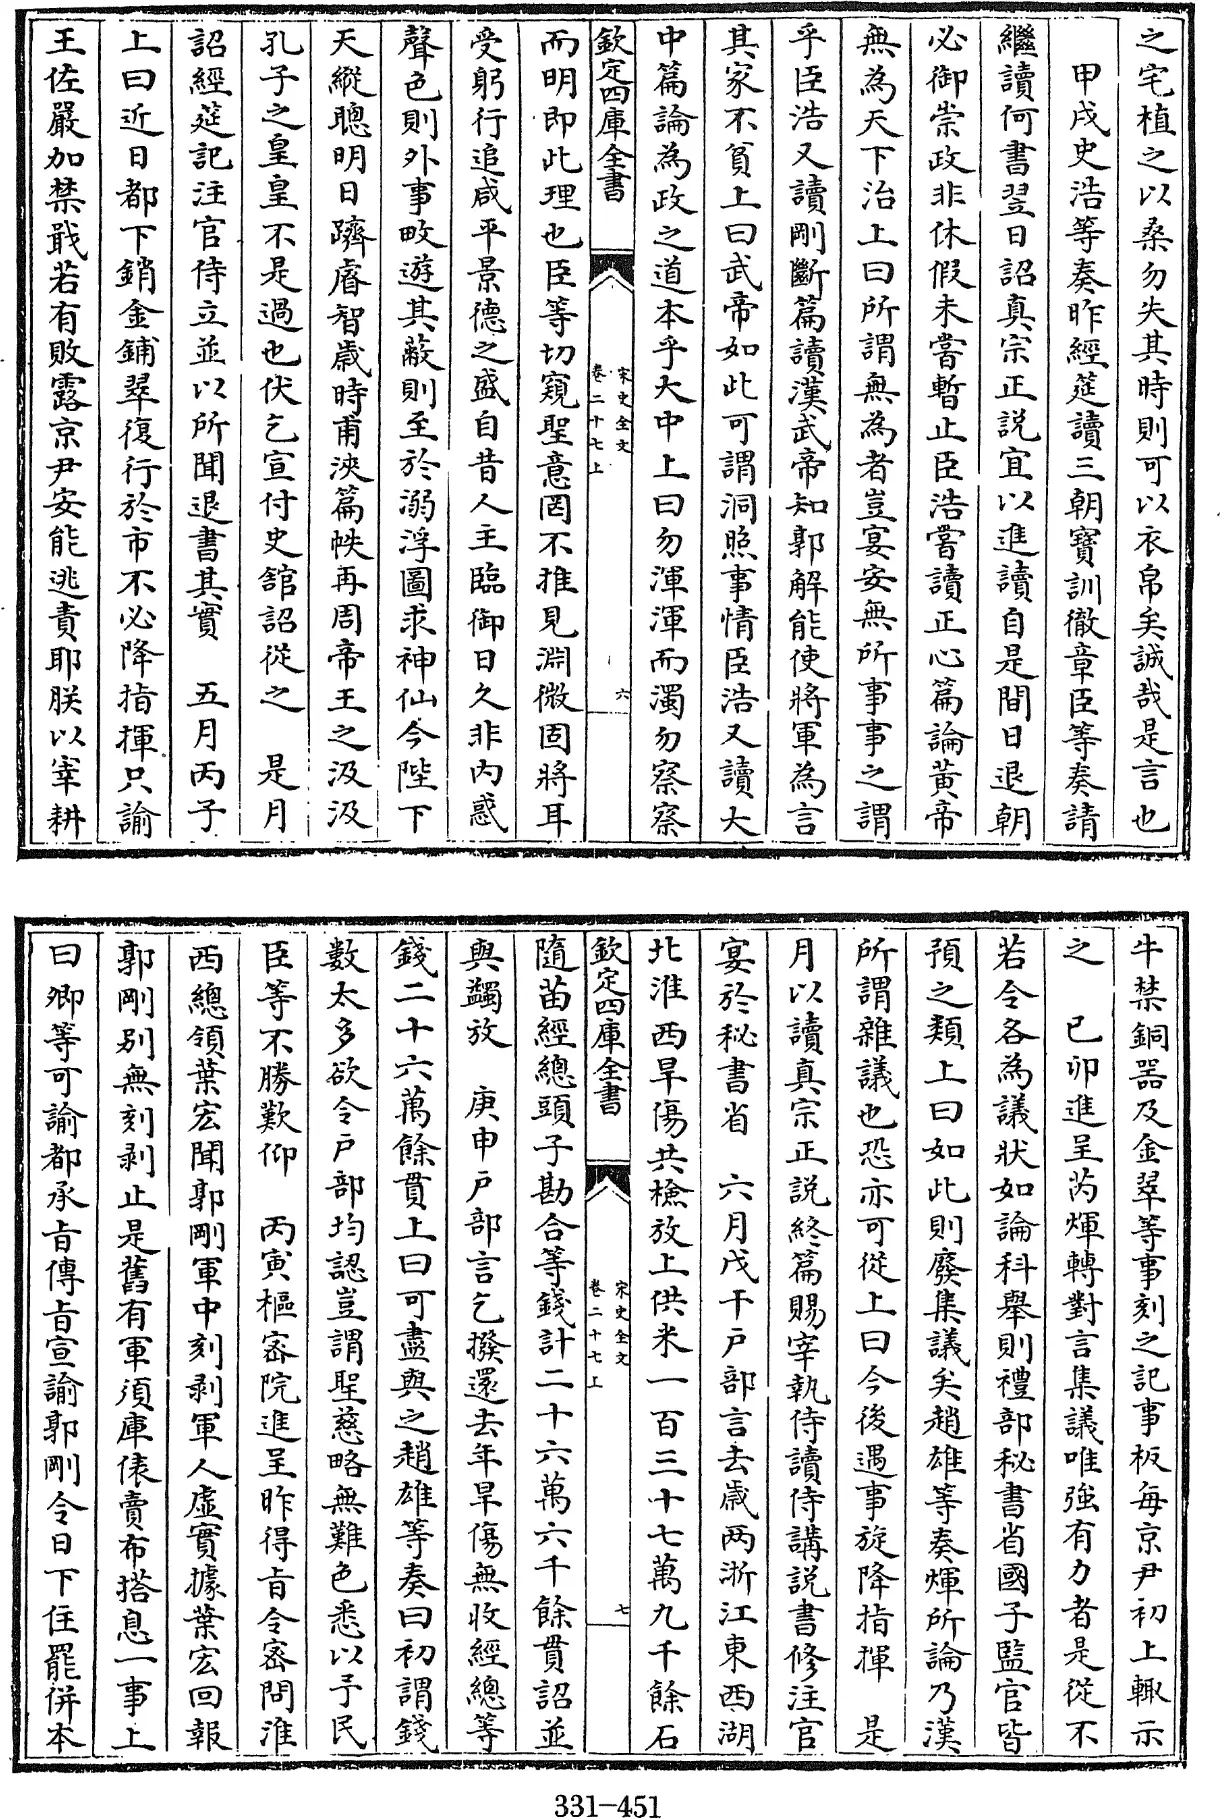 之宅植之以桑勿失其時則可以衣帛矣誠哉是言也
甲戌史浩等奏昨經筵讀三朝寶訓徹章臣等奏請
繼讀何書翌日詔真宗正説宜以進讀自是間日退朝
必御崇政非休假未嘗暫止臣浩嘗讀正心篇論黄帝
無為天下治上曰所謂無為者豈宴安無所事事之謂
乎臣浩又讀剛斷篇讀漢武帝知郭解能使將軍為言
其家不貧上曰武帝如此可謂洞照事情臣浩又讀大
中篇論為政之道本乎大中上曰勿渾渾而濁勿察察
欽定四庫全書
宋史全文
卷二十七上
六
而明即此理也臣等切窺聖意罔不推見淵微固將耳
受躬行追咸平景德之盛自昔人主臨御日久非内惑
聲色則外事畋遊其蔽則至於溺浮圖求神仙今陛下
天縱聰明日躋睿智歲時甫浹篇帙再周帝王之汲汲
孔子之皇皇不是過也伏乞宣付史館詔從之　是月
詔經筵記注官侍立並以所聞退書其實　五月丙子
上曰近日都下銷金鋪翠復行於市不必降指揮只諭
王佐嚴加禁戢若有敗露京尹安能逃責耶朕以宰耕
牛禁銅器及金翠等事刻之記事板每京尹初上輙示
之　己卯進呈芮煇轉對言集議唯強有力者是從不
若令各為議狀如論科舉則禮部秘書省國子監官皆
預之類上曰如此則廢集議矣趙雄等奏煇所論乃漢
所謂雜議也恐亦可從上曰今後遇事旋降指揮　是
月以讀真宗正説終篇賜宰執侍讀侍講説書修注官
宴於秘書省　六月戊午户部言去歲兩浙江東西湖
北淮西旱傷共檢放上供米一百三十七萬九千餘石
欽定四庫全書
宋史全文
卷二十七上
七
隨苗經總頭子勘合等錢計二十六萬六千餘貫詔並
與蠲放　庚申户部言乞撥還去年旱傷無收經總等
錢二十六萬餘貫上曰可盡與之趙雄等奏曰初謂錢
數太多欲令户部均認豈謂聖慈略無難色悉以予民
臣等不勝歎仰　丙寅樞密院進呈昨得旨令密問淮
西總領葉宏聞郭剛軍中刻剥軍人虛實據葉宏回報
郭剛别無刻剥止是舊有軍須庫俵賣布搭息一事上
曰卿等可諭都承旨傳旨宣諭郭剛令日下住罷併本
331-451